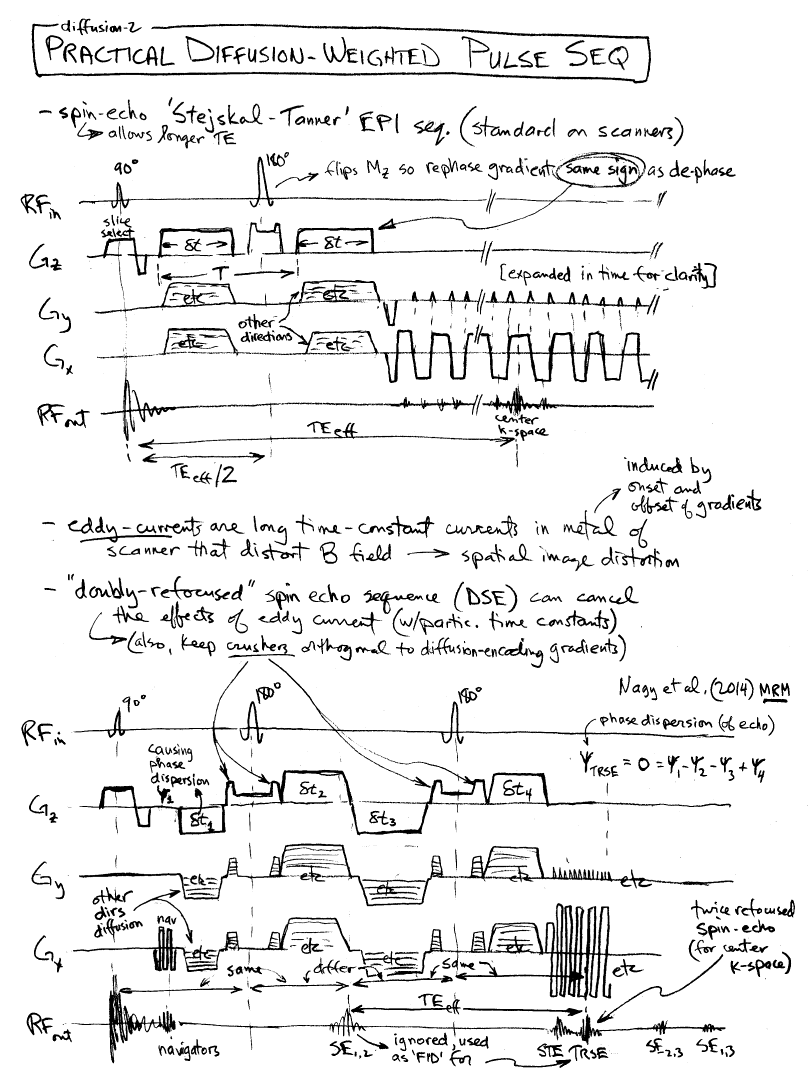 diffusion-2
PRACTICAL DIFFUSION-WEIGHTED PULSE SEQ
- spin-echo 'Stejskal-Tanner' EPI seq. (standard on scanners)
↳ allows longer TE
90°
180°
→ flips Mz so rephase gradient same sign as de-phase
RFin
slice select
δt
δt
Gz
T
[expanded in time for clarity]
etc
etc
Gy
other directions
etc
etc
Gx
RFout
center k-space
TEeff
TEeff/2
induced by onset and offset of gradients
- eddy-currents are long time-constant currents in metal of
scanner that distort B field → spatial image distortion
- "doubly-refocused" spin echo sequence (DSE) can cancel
the effects of eddy current (w/partic. time constants)
(also, keep crushers orthogonal to diffusion-encoding gradients)
Nagy et al. (2014) MRM
90°
180°
180°
RFin
phase dispersion (of echo)
causing phase dispersion
ψ1
ψTRSE = 0 = ψ1 - ψ2 - ψ3 + ψ4
Gz
δt1
δt2
δt3
δt4
Gy
etc
etc
etc
etc
etc
other dirs diffusion
nav
Gx
etc
etc
etc
etc
etc
twice refocused spin-echo (for center k-space)
same
differ
same
TEeff
RFout
navigators
SE1,2
ignored, used as 'FID' for
STE
TRSE
SE2,3
SE1,3